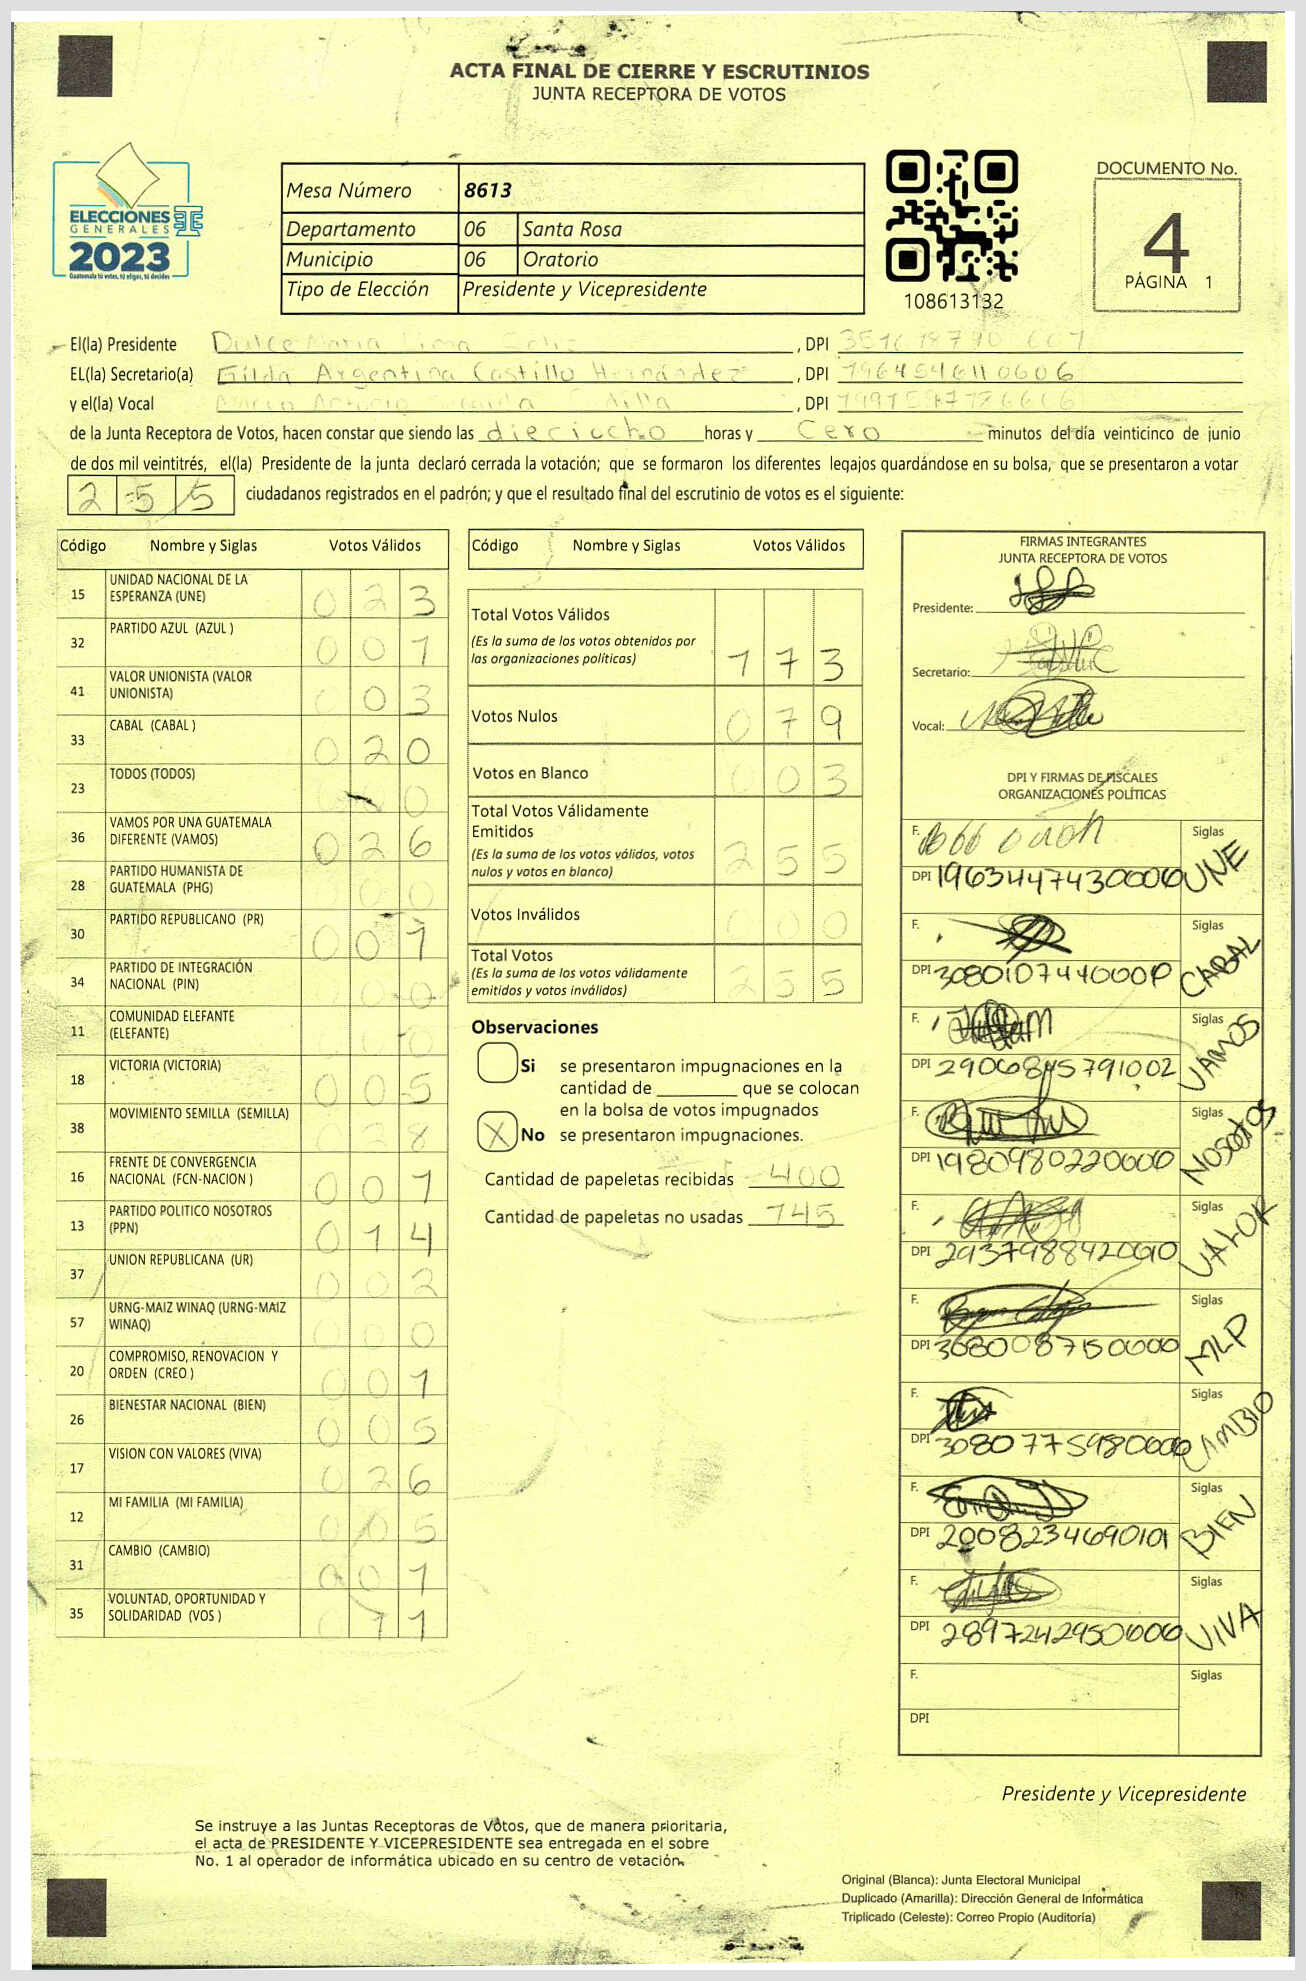 ACTA FINAL DE CIERRE Y ESCRUTINIOS
JUNTA RECEPTORA DE VOTOS
ELECCIONES
GENERALES
2023
Guatemala tú votes, tú eliges, tú decides
Mesa Número 8613
Departamento 06 Santa Rosa
Municipio 06 Oratorio
Tipo de Elección Presidente y Vicepresidente
108613132
DOCUMENTO No.
4
PÁGINA 1
El(la) Presidente Dulce Maria Lima, DPI
EL(la) Secretario(a) Gilda Argentina Castillo Hernández, DPI 1964546110606
y el(la) Vocal Marco Antonio, DPI
de la Junta Receptora de Votos, hacen constar que siendo las dieciocho horas y Cero minutos del día veinticinco de junio
de dos mil veintitrés, el(la) Presidente de la junta declaró cerrada la votación; que se formaron los diferentes legajos guardándose en su bolsa, que se presentaron a votar
255 ciudadanos registrados en el padrón; y que el resultado final del escrutinio de votos es el siguiente:
Código Nombre y Siglas Votos Válidos
15 UNIDAD NACIONAL DE LA ESPERANZA (UNE) 023
32 PARTIDO AZUL (AZUL ) 001
41 VALOR UNIONISTA (VALOR UNIONISTA) 03
33 CABAL (CABAL ) 020
23 TODOS (TODOS) 0
36 VAMOS POR UNA GUATEMALA DIFERENTE (VAMOS) 026
28 PARTIDO HUMANISTA DE GUATEMALA (PHG) 00
30 PARTIDO REPUBLICANO (PR) 001
34 PARTIDO DE INTEGRACIÓN NACIONAL (PIN) 00
11 COMUNIDAD ELEFANTE (ELEFANTE) 0
18 VICTORIA (VICTORIA) 005
38 MOVIMIENTO SEMILLA (SEMILLA) 028
16 FRENTE DE CONVERGENCIA NACIONAL (FCN-NACION ) 001
13 PARTIDO POLITICO NOSOTROS (PPN) 014
37 UNION REPUBLICANA (UR) 002
57 URNG-MAIZ WINAQ (URNG-MAIZ WINAQ) 000
20 COMPROMISO, RENOVACION Y ORDEN (CREO ) 001
26 BIENESTAR NACIONAL (BIEN) 005
17 VISION CON VALORES (VIVA) 026
12 MI FAMILIA (MI FAMILIA) 005
31 CAMBIO (CAMBIO) 001
35 VOLUNTAD, OPORTUNIDAD Y SOLIDARIDAD (VOS ) 11
Código Nombre y Siglas Votos Válidos
Total Votos Válidos
(Es la suma de los votos obtenidos por
las organizaciones políticas) 173
Votos Nulos 079
Votos en Blanco 003
Total Votos Válidamente
Emitidos
(Es la suma de los votos válidos, votos
nulos y votos en blanco) 255
Votos Inválidos 000
Total Votos
(Es la suma de los votos válidamente
emitidos y votos inválidos) 255
Observaciones
Si se presentaron impugnaciones en la
cantidad de ________ que se colocan
en la bolsa de votos impugnados
X No se presentaron impugnaciones.
Cantidad de papeletas recibidas 400
Cantidad de papeletas no usadas 145
FIRMAS INTEGRANTES
JUNTA RECEPTORA DE VOTOS
Presidente:
Secretario:
Vocal:
DPI Y FIRMAS DE FISCALES
ORGANIZACIONES POLÍTICAS
F. Siglas
DPI 1963447430606 UNE
F. Siglas
DPI CABAL
F. Siglas
DPI 2906845791002 VAMOS
F. Siglas
DPI 1980980220606 NOSOTROS
F. Siglas
DPI VALOR
F. Siglas
DPI 3080087150606 MLP
F. Siglas
DPI 3080775980606 CAMBIO
F. Siglas
DPI 2008234690101 BIEN
F. Siglas
DPI 2897242950606 VIVA
F. Siglas
DPI
Presidente y Vicepresidente
Se instruye a las Juntas Receptoras de Votos, que de manera prioritaria,
el acta de PRESIDENTE Y VICEPRESIDENTE sea entregada en el sobre
No. 1 al operador de informática ubicado en su centro de votación.
Original (Blanca): Junta Electoral Municipal
Duplicado (Amarilla): Dirección General de Informática
Triplicado (Celeste): Correo Propio (Auditoría)